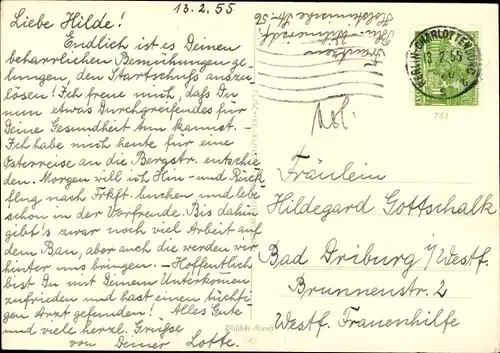 13.2.55
Liebe Hilde!
Endlich ist es Deinen
beharrlichen Bemühungen ge-
lungen, den Startschuss auszu-
lösen! Ich freue mich, daß Du
nun etwas Durchgreifendes für
Deine Gesundheit tun kannst. –
Ich habe mich heute für eine
Osterreise an die Bergstr. entschie-
den. Morgen will ich Hin- und Rück-
flug nach Frkft. buchen und lebe
schon in der Vorfreude. Bis dahin
gibt's zwar noch viel Arbeit auf
dem Bau, aber auch die werden wir
hinter uns bringen. – Hoffentlich
bist Du mit Deinem Unterkommen
zufrieden und hast einen tüchti-
gen Arzt gefunden! Alles Gute
und viele herzl. Grüsse
von Deiner Lotte.
BERLIN-CHARLOTTENBURG
13.2.55
744
Abs.
Fräulein
Hildegard Gottschalk
Bad Driburg i/Westf.
Brunnenstr. 2
Westf. Frauenhilfe